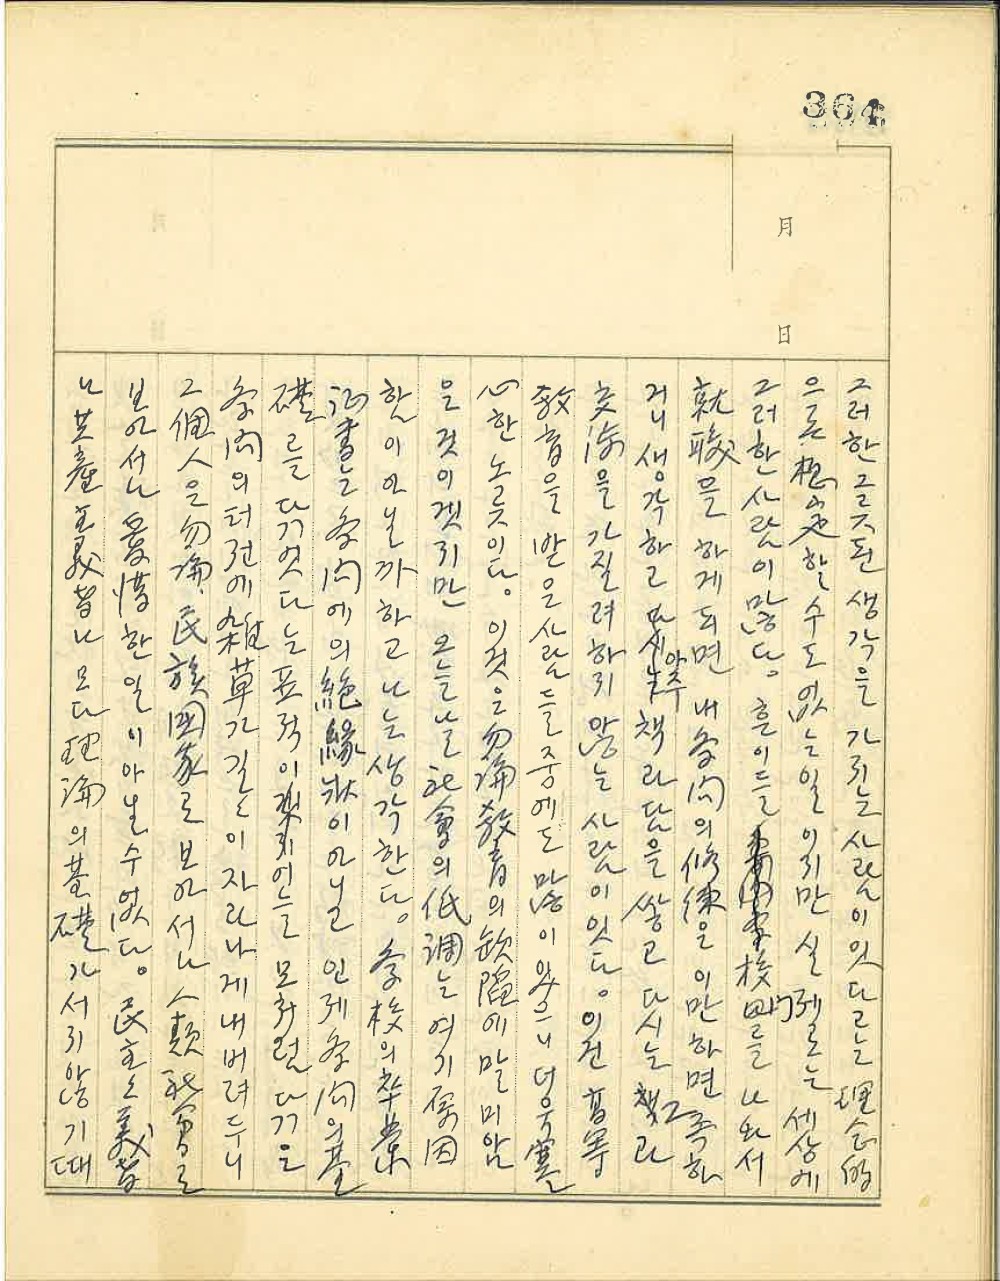 364
月
日
그러한 그릇된 생각을 가지는 사람이 잇다고는 理念的
으론 想定할 수도 없는 일이지만 실제로는 세상에
그러한 사람이 많다. 흔이들 校門를 나와서
就職을 하게 되면 내 学问의 修練은 이만하면 족하
거니 생각하고 아주 책과 담을 쌓고 다시는 그 책과
交涉을 가질려 하지 않는 사람이 잇다. 이건 高等
教育을 받은 사람들 중에도 많이 있으니 더욱 寒
心한 노릇이다. 이것은 勿論 教育의 缺陷에 말미암
은 것이겟지만 오늘날 社會의 低調는 여기 原因
함이 아닐까 하고 나는 생각한다. 学校의 卒業
证書는 学问에의 絶緣狀이 아닐 인제 学问의 基
礎를 다젓다는 표적이 언늘 모처럼 다
学问의 터전에 雜草가 길길이 자라나게 내버려두니
그 個人은 勿論 民族國家로 보아서나 人類社會로
보아서나 애惜한 일이 아닐 수 없다. 民主主義者
나 共產主義者나 모다 理論의 基礎가 서지 않기 때